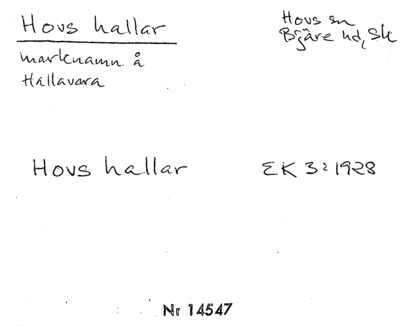 Hovs hallar
Hovs sn
Bjäre hd, Sk
marknamn å
Hallavara
Hovs hallar
EK 3:1928
Nr 14547